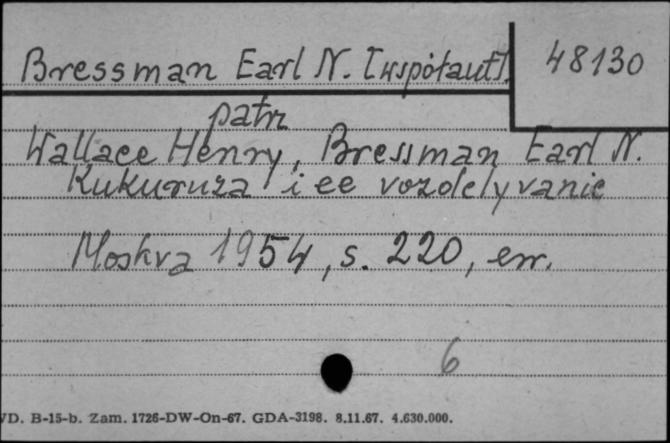 Bressman Earl N. [współaut].
48130
patrz
Wallace Henry, Bressman Earl N.
Kukuruza i ee vozdelyvanie
Moskva 1954, s. 220, err.
6
VD. B-15-b. Zam. 1726-DW-On-67. GDA-3198. 8.11.67. 4.630.000.